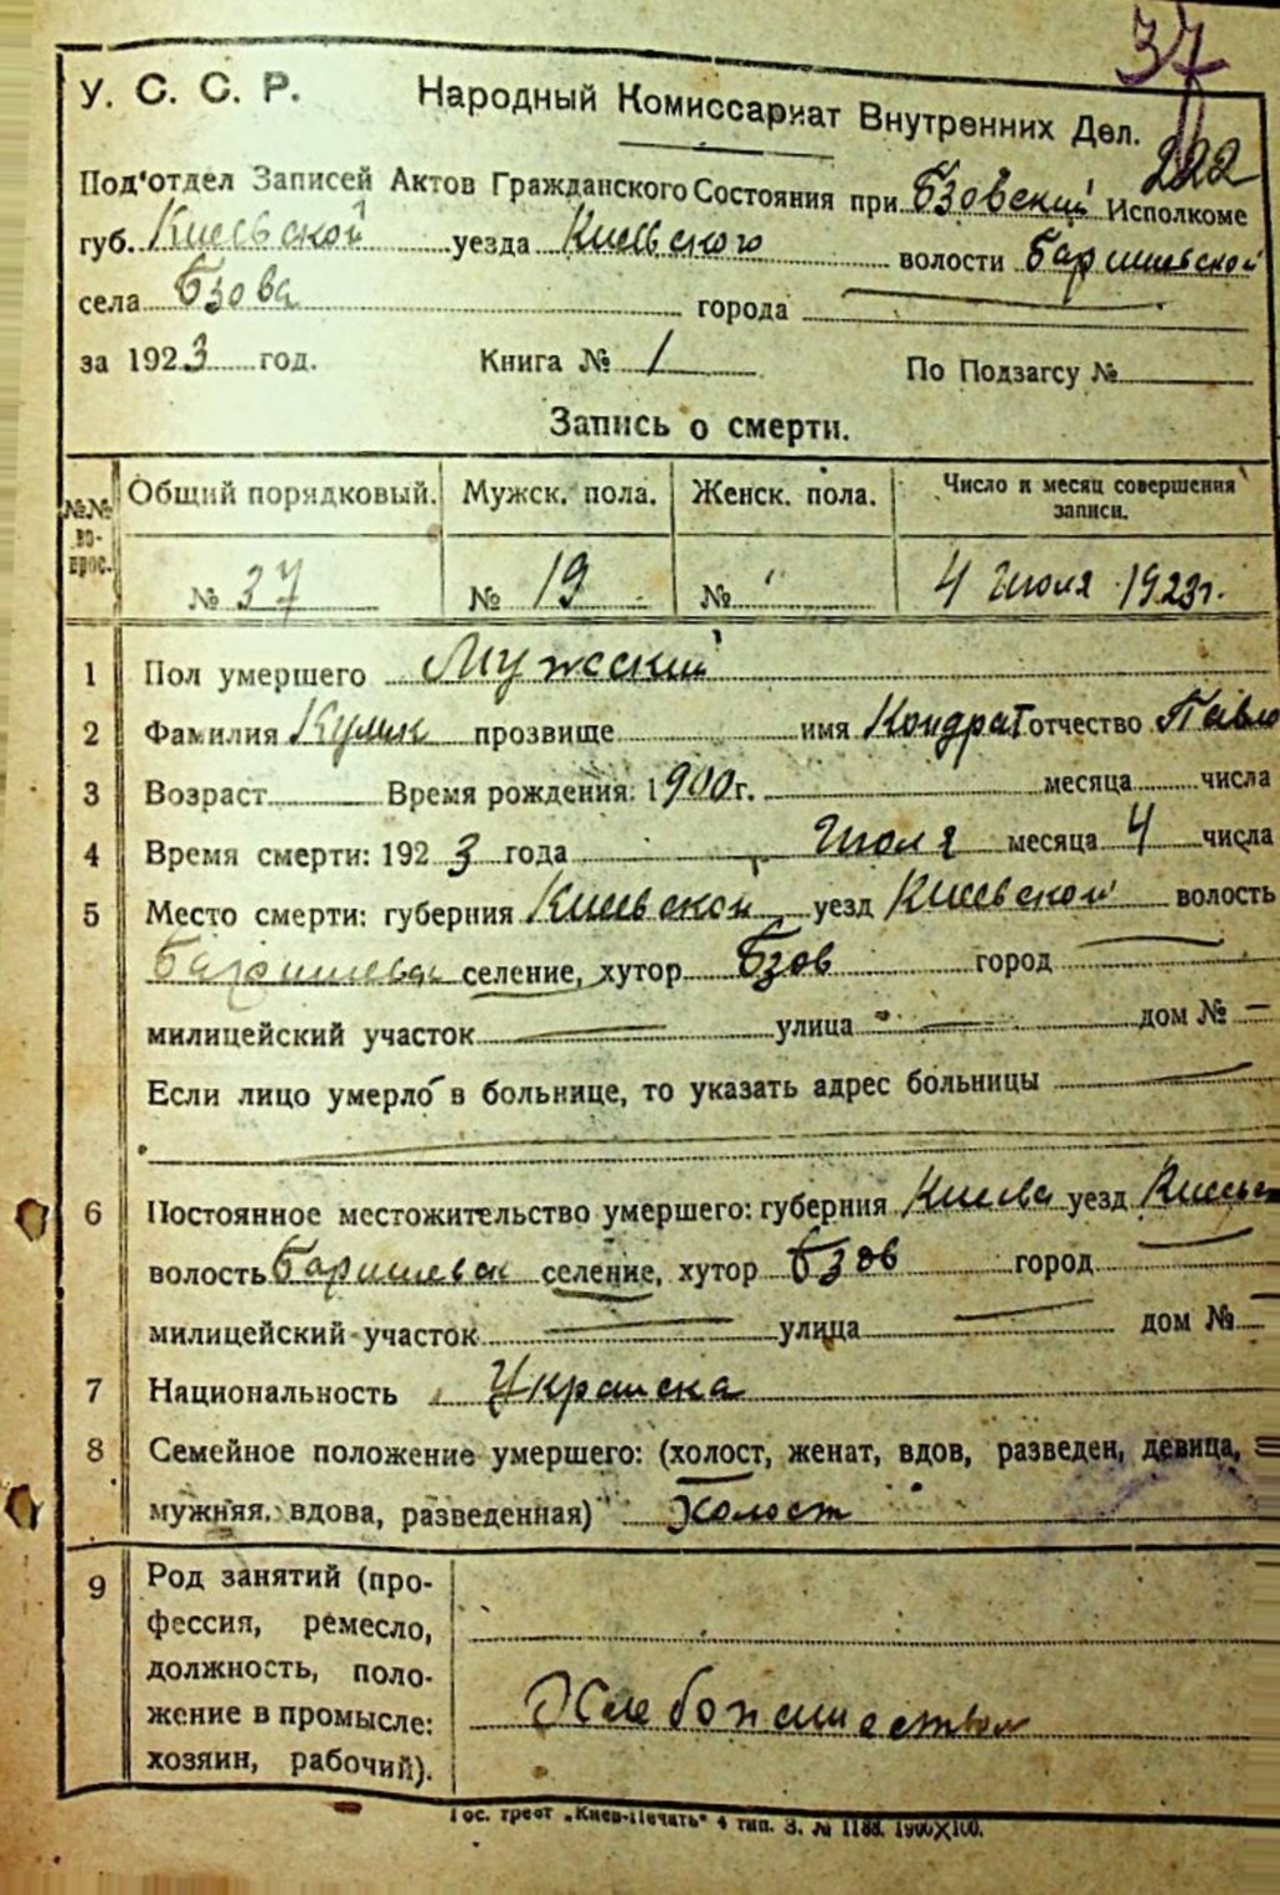 37
У. С. С. Р. Народный Комиссариат Внутренних Дел.
222
Под'отдел Записей Актов Гражданского Состояния при Бзовский Исполкоме
губ. Киевской уезда Киевского волости Баришевской
села Бзова города
за 1923 год. Книга № 1 По Подзагсу №
Запись о смерти.
№№ во- прос. Общий порядковый. Мужск. пола. Женск. пола. Число и месяц совершения записи.
№ 37 № 19 № 4 Июля 1923г.
1 Пол умершего Мужский
2 Фамилия Кулик прозвище имя Кондрат отчество Павло
3 Возраст Время рождения: 1900г. месяца числа
4 Время смерти: 1923 года Июля месяца 4 числа
5 Место смерти: губерния Киевской уезд Киевской волость
Баришевск селение, хутор Бзов город
милицейский участок улица дом № —
Если лицо умерло в больнице, то указать адрес больницы
6 Постоянное местожительство умершего: губерния Киева уезд
волость Баришевск селение, хутор Бзов город
милицейский участок улица дом №
7 Национальность Украиска
8 Семейное положение умершего: (холост, женат, вдов, разведен, девица,
мужняя, вдова, разведенная) Холост
9 Род занятий (про-
фессия, ремесло,
должность, поло-
жение в промысле:
хозяин, рабочий).
Гос. трест „Киев-Печать" 4 тип. З. № 1188. 1900X100.